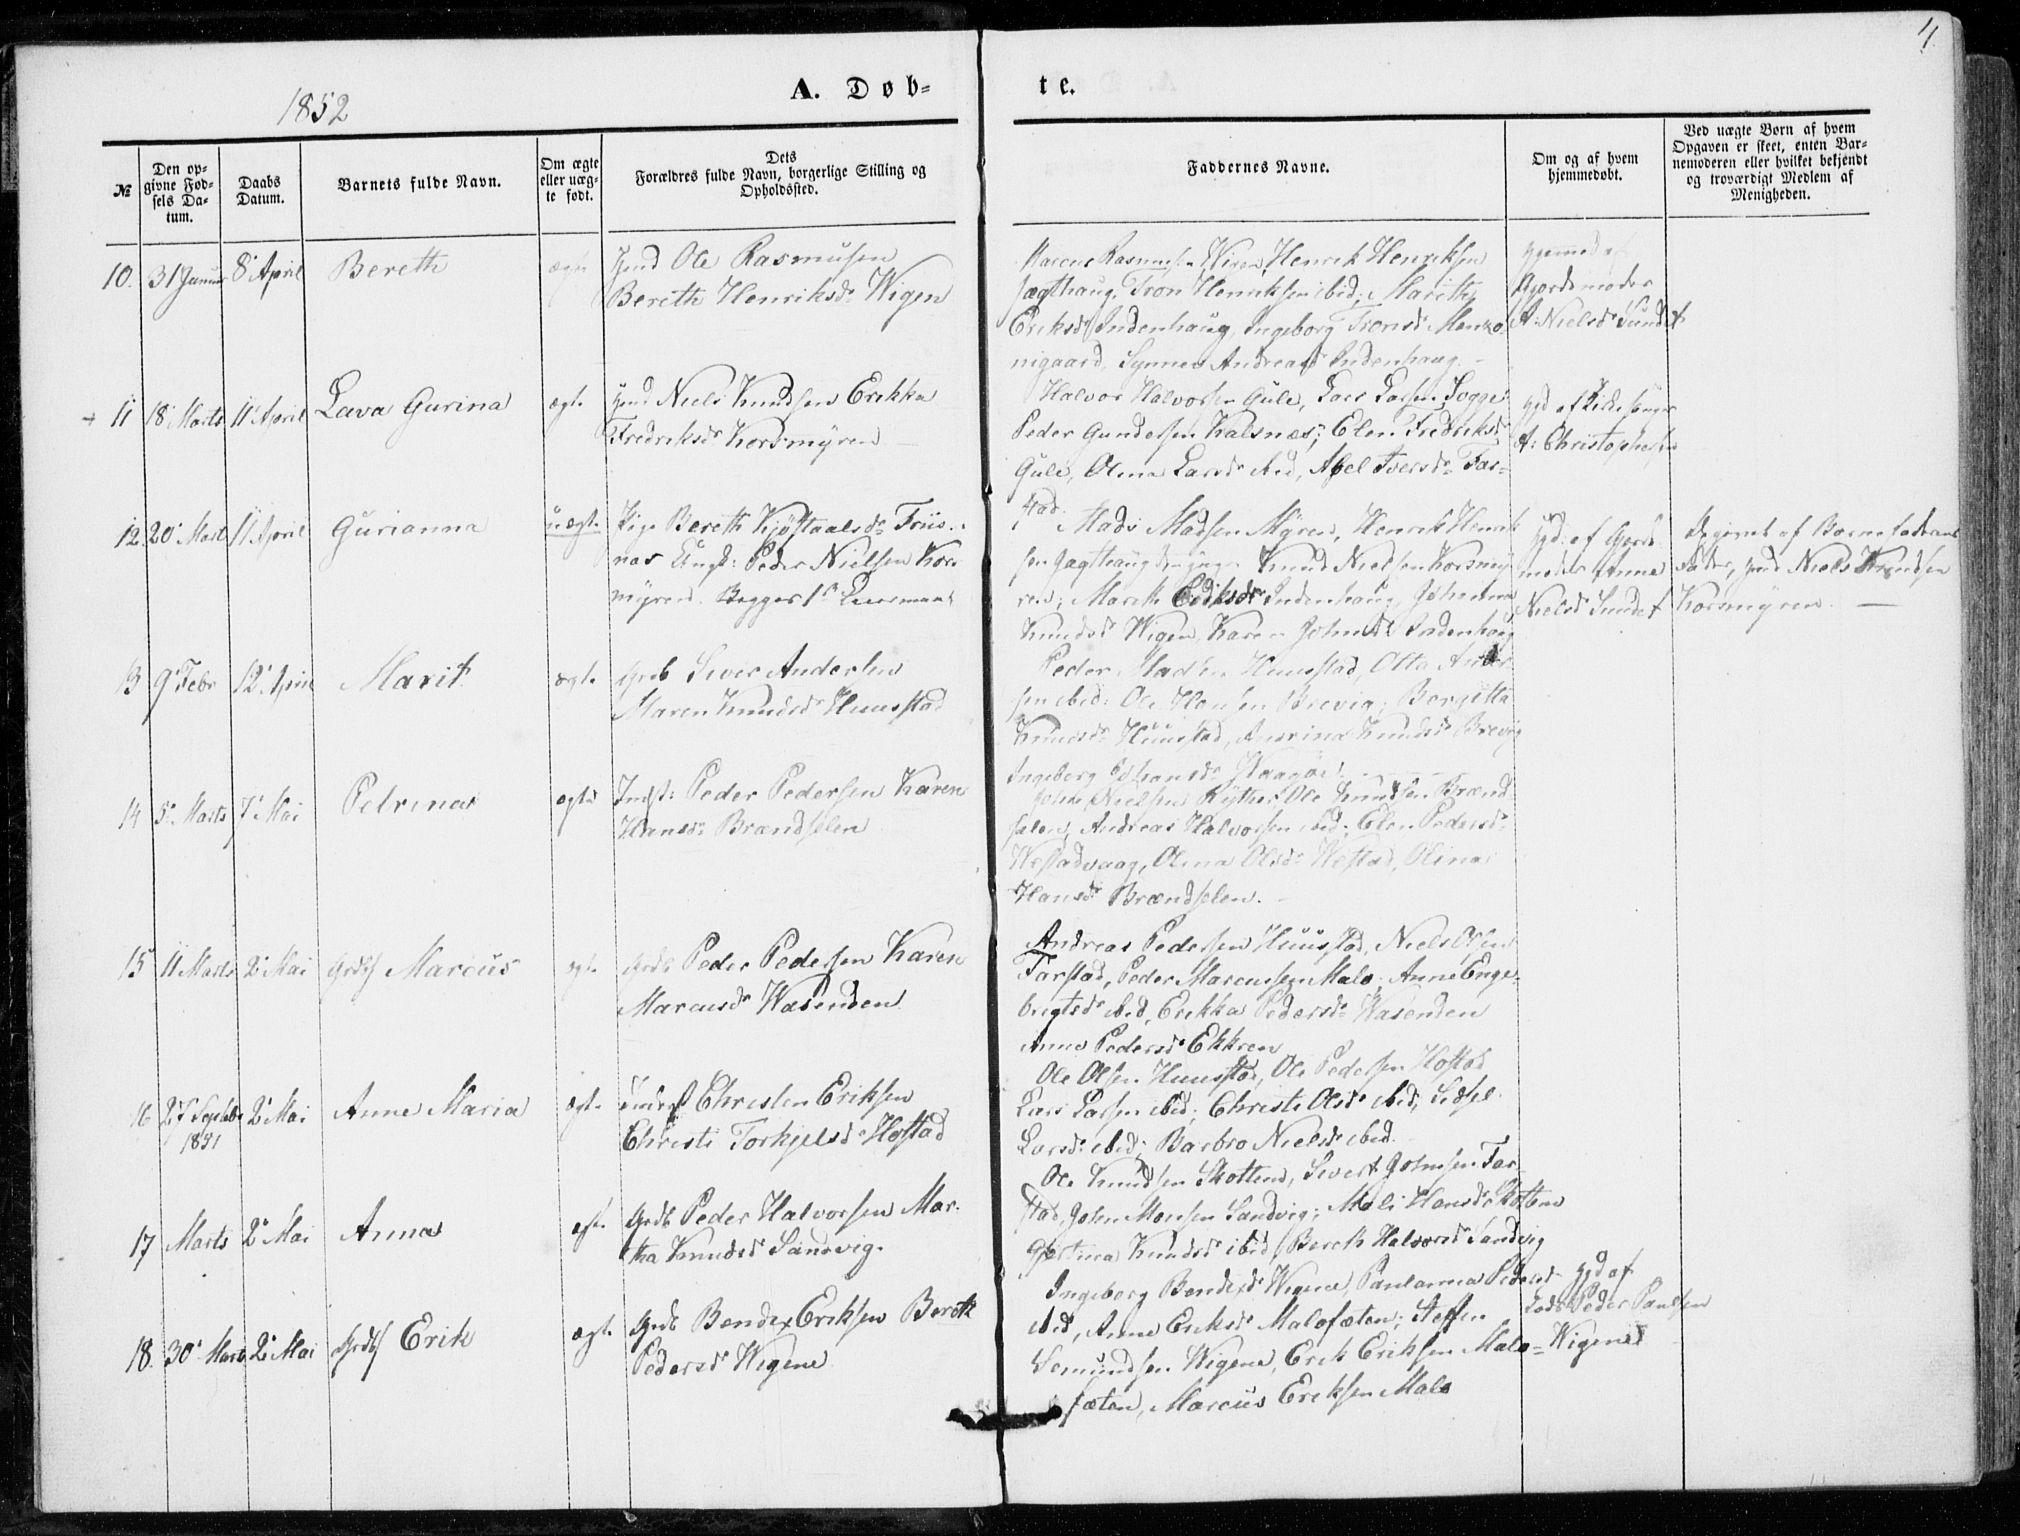 4
1852
A. Døb=
te.
№
Den op-
givne Fød-
sels Da-
tum.
Daabs
Datum.
Barnets fulde Navn.
Om ægte
eller uæg-
te født.
Dets
Forældres fulde Navn, borgerlige Stilling og
Opholdssted.
Faddernes Navne.
Om og af hvem
hjemmedøbt.
Ved uægte Børn af hvem
Opgaven er skeet, enten Bar-
nemoderen eller hvilket bekjendt
og troværdigt Medlem af
Menigheden.
10. 31 Januar 8 April Bereth ægte
Ole Rasmusen
Bereth Henriksdr Wigen
Rasmusen Wigen, Henrik Henriksen
Jægthaug, Tron Henriksen ibid; Marith
Eriksdr Indenhaug, Ingeborg Tronsdr
nigaard, Synnev Andreasdr Indenhaug
hjemmed af
Gjordemoder
A: Nielsdr Sundet
11 18 Marts 11 April Lava Gurina ægte
Niels Knudsen Erikka
Fredriksdr Korsmyren
Halvor Halvorsen Gule, Lars Larsen
Peder Gundersen Kalsnæs; Elen Fredriksdr
Gule, Olina Larsdr ibid, Iversdr Far=
stad.
hjd af Kirkesanger
A: Christophersen
12. 20 Marts 11 April Gurianna uægte
Pige Bereth Friis-
næs Ungk: Peder Nielsen Kors
myren. Begges 1ste Leiermaal
Mads Madsen Myren, Henrik Henrik
sen Jægthaug Knud Nielsen Korsmy
ren; Marith Eriksdr Indenhaug, Johanna
Knudsdr Wigen, Karen Johnsdr Indenhaug
hjd: af Gjorde
moder Anna
Nielsdr Sundet
Opgivet af Barnefaderens
Fader, Niels Knudsen
Korsmyren. —
13 9 Febr 12 April Marit ægte
Grdb Siver Andersen
Maren Knudsdr Huustad
Peder Madsen Huustad, Otto Ander
sen ibid: Ole Hansen Brevig; Borgitta
Knudsdr Huustad, Anrina Knudsdr Brevig
Ingeborg
14 5 Marts 7 Mai Petrina ægte
Indst: Peder Pedersen Karen
Hansdr Brandselen
John Nielsen Ole Knudsen Brænd
selen, Andreas Halvorsen ibid; Elen Pedersdr
Westadvaag, Olina Olsdr Westad, Olina
Hansdr Brændselen.
15 11 Marts 2 Mai Marcus ægte
Grdb Peder Pedersen Karen
Marcusdr Wasenden
Andreas Pedersen Huustad, Niels Olsen
Farstad, Peder Marcussen Malo; Anne Enge=
brigtsdr ibid, Erikka Pedersdr Wasenden
Anne Pedersdr Ekkren
16 27 Septbr 2 Mai Anne Maria ægte
1851
Christen Eriksen
Christi Torkjelsdr Hostad
Ole Olsen Huustad, Ole Pedersen Hostad
Lars Larsen ibid; Christi Olsdr ibid, Sidsel
Larsdr ibid; Barbro Nielsdr ibid.
17 Marts 2 Mai Anna ægte
Grdb Peder Halvorsen Mar-
tha Knudsdr Sandvig.
Ole Knudsen Skottem, Sivert Johnsen Far
stad, John Monsen Sandvig; Mali Hansdr Skottem
Gjertina Knudsdr ibid, Bereth Halvorsdr Sandvig
18. 30 Marts 2 Mai Erik ægte
Grdb Bendix Eriksen Bereth
Pedersdr Wigene
Ingeborg Bendixdr Wigene, Paulanna Pedersdr
ibid, Anne Eriksdr Malofæten; Steffen
Semundsen Wigene, Erik Eriksen Malo=
fæten, Marcus Eriksen Malo
hjd af
Peder Paulsen
Wigene